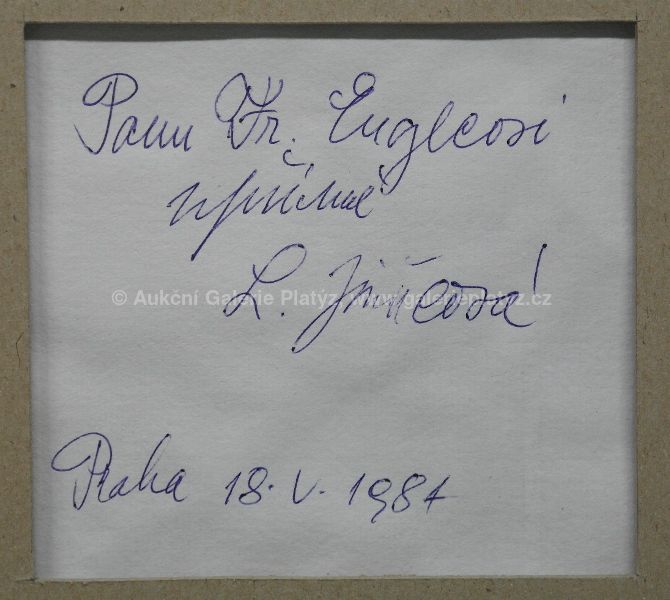 Panu Fr. Englovi
upřímně
L. Jiřincová
© Aukční Galerie Platýz, www.galerieplatyz.cz
Praha 18. V. 1987